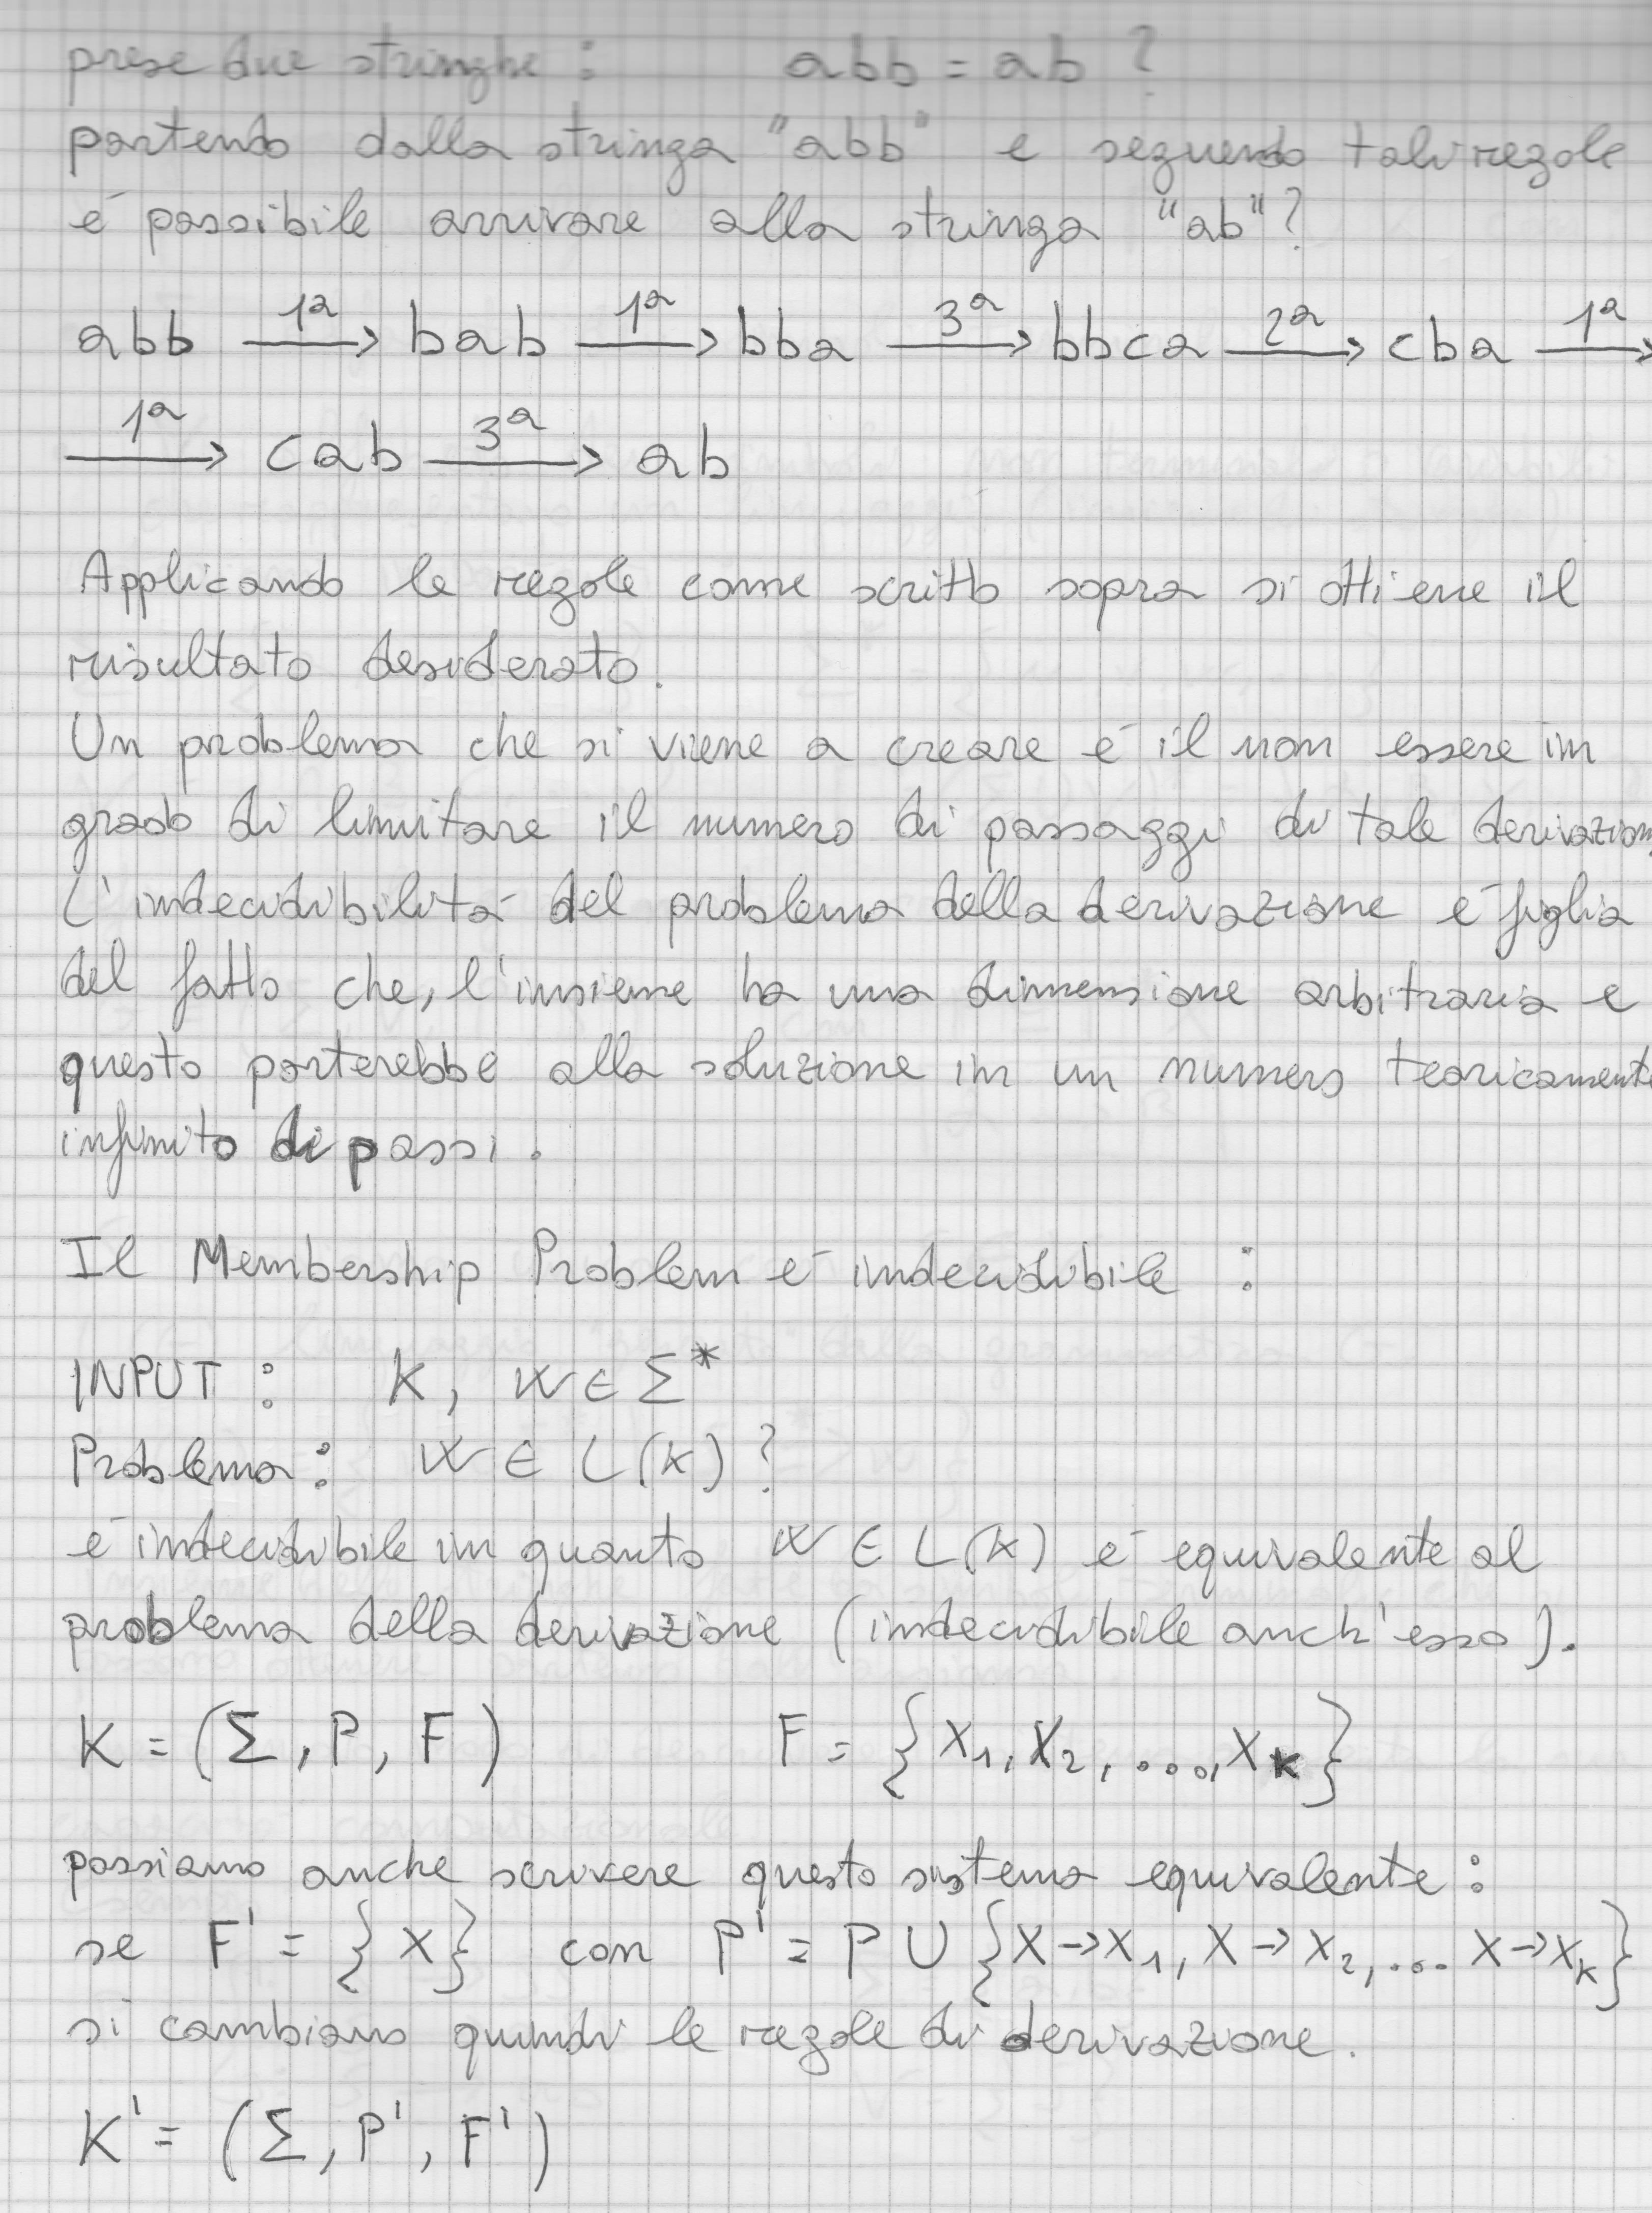 prese due stringhe : abb = ab ?
partendo dalla stringa "abb" e seguendo tali regole
é possibile arrivare alla stringa "ab"?
abb 1ª→ bab 1ª→ bba 3ª→ bbca 2ª→ cba 1ª→
1ª→ cab 3ª→ ab
Applicando le regole come scritto sopra si ottiene il
risultato desiderato.
Un problema che si viene a creare é il non essere in
grado di limitare il numero di passaggi di tale derivazion
L'indecidibilitá del problema della derivazione é figlia
del fatto che, l'insieme ha una dimensione arbitraria e
questo porterebbe alla soluzione in un numero teoricamente
infinito di passi.
Il Membership Problem é indecidibile :
INPUT : K, W ∈ Σ*
Problema : W ∈ L(K) ?
é indecidibile in quanto W ∈ L(K) é equivalente al
problema della derivazione (indecidibile anch'esso).
K = (Σ, P, F) F = {X₁, X₂, ..., Xₖ}
possiamo anche scrivere questo sistema equivalente :
se F' = {X} con P' = P ∪ {X→X₁, X→X₂, ... X→Xₖ}
si cambiano quindi le regole di derivazione.
K' = (Σ, P', F')